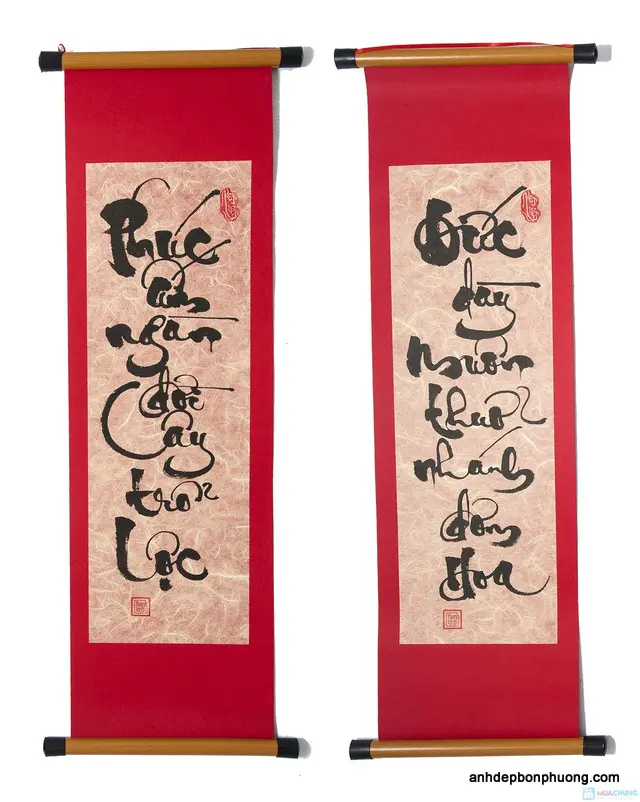 Phúc
ấm
ngàn
đời
Cây
trổ
Lộc
Đức
dày
Muôn
thuở
nhánh
đơm
Hoa
anhdepbonphuong.com
MUACHUNG